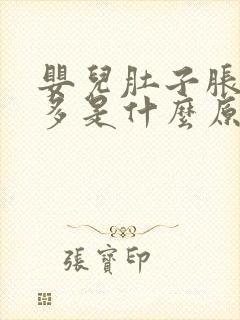 嬰兒肚子脹
多是什麼原
張寶印